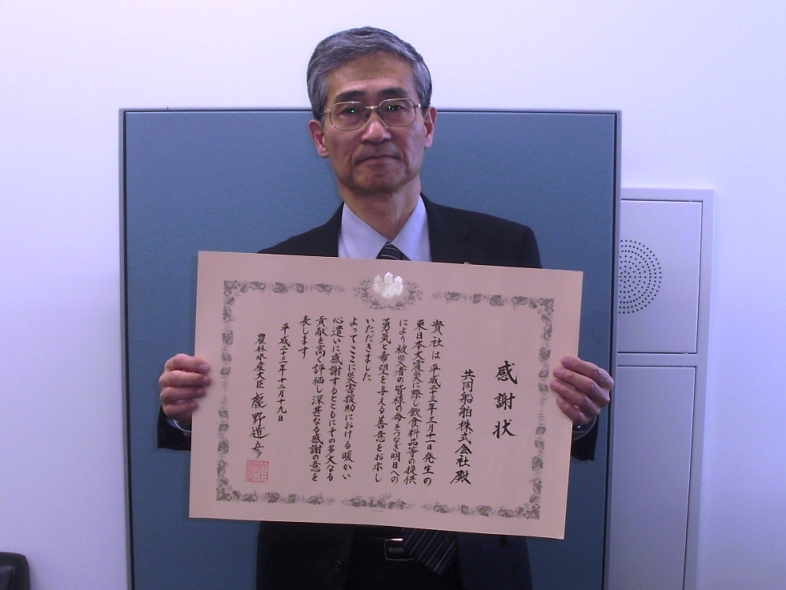 感謝状
共同船舶株式会社殿
貴社は平成二十三年三月十一日発生の
東日本大震災に際し飲食料品等の提供
により被災者の皆様の命をつなぎ明日への
勇気と希望を与える善意をお示し
いただきました
よってここに災害援助における暖かい
心遣いに感謝するとともにその多大なる
貢献を高く評価し深甚なる感謝の意を
表します
平成二十三年十二月十九日
農林水産大臣 鹿野道彦